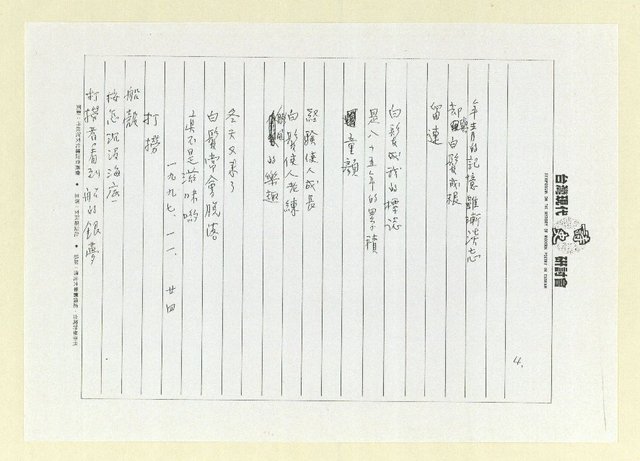 台灣現代詩史研討會
SYMPOSIUM ON THE HISTORY OF MODERN POETRY IN TAIWAN
4.
年青的記憶雖漸淡忘
却與白髮或根
留連
白髮成我的標誌
是八十五年的累積
童顏
經驗使人成長
白髮使人老練
的樂趣
冬天又來了
白髮常會脫落
真不是滋味喲
一九九七、一一、廿四
打撈
船骸
按急沉沒海底
打撈者看到船的銀夢